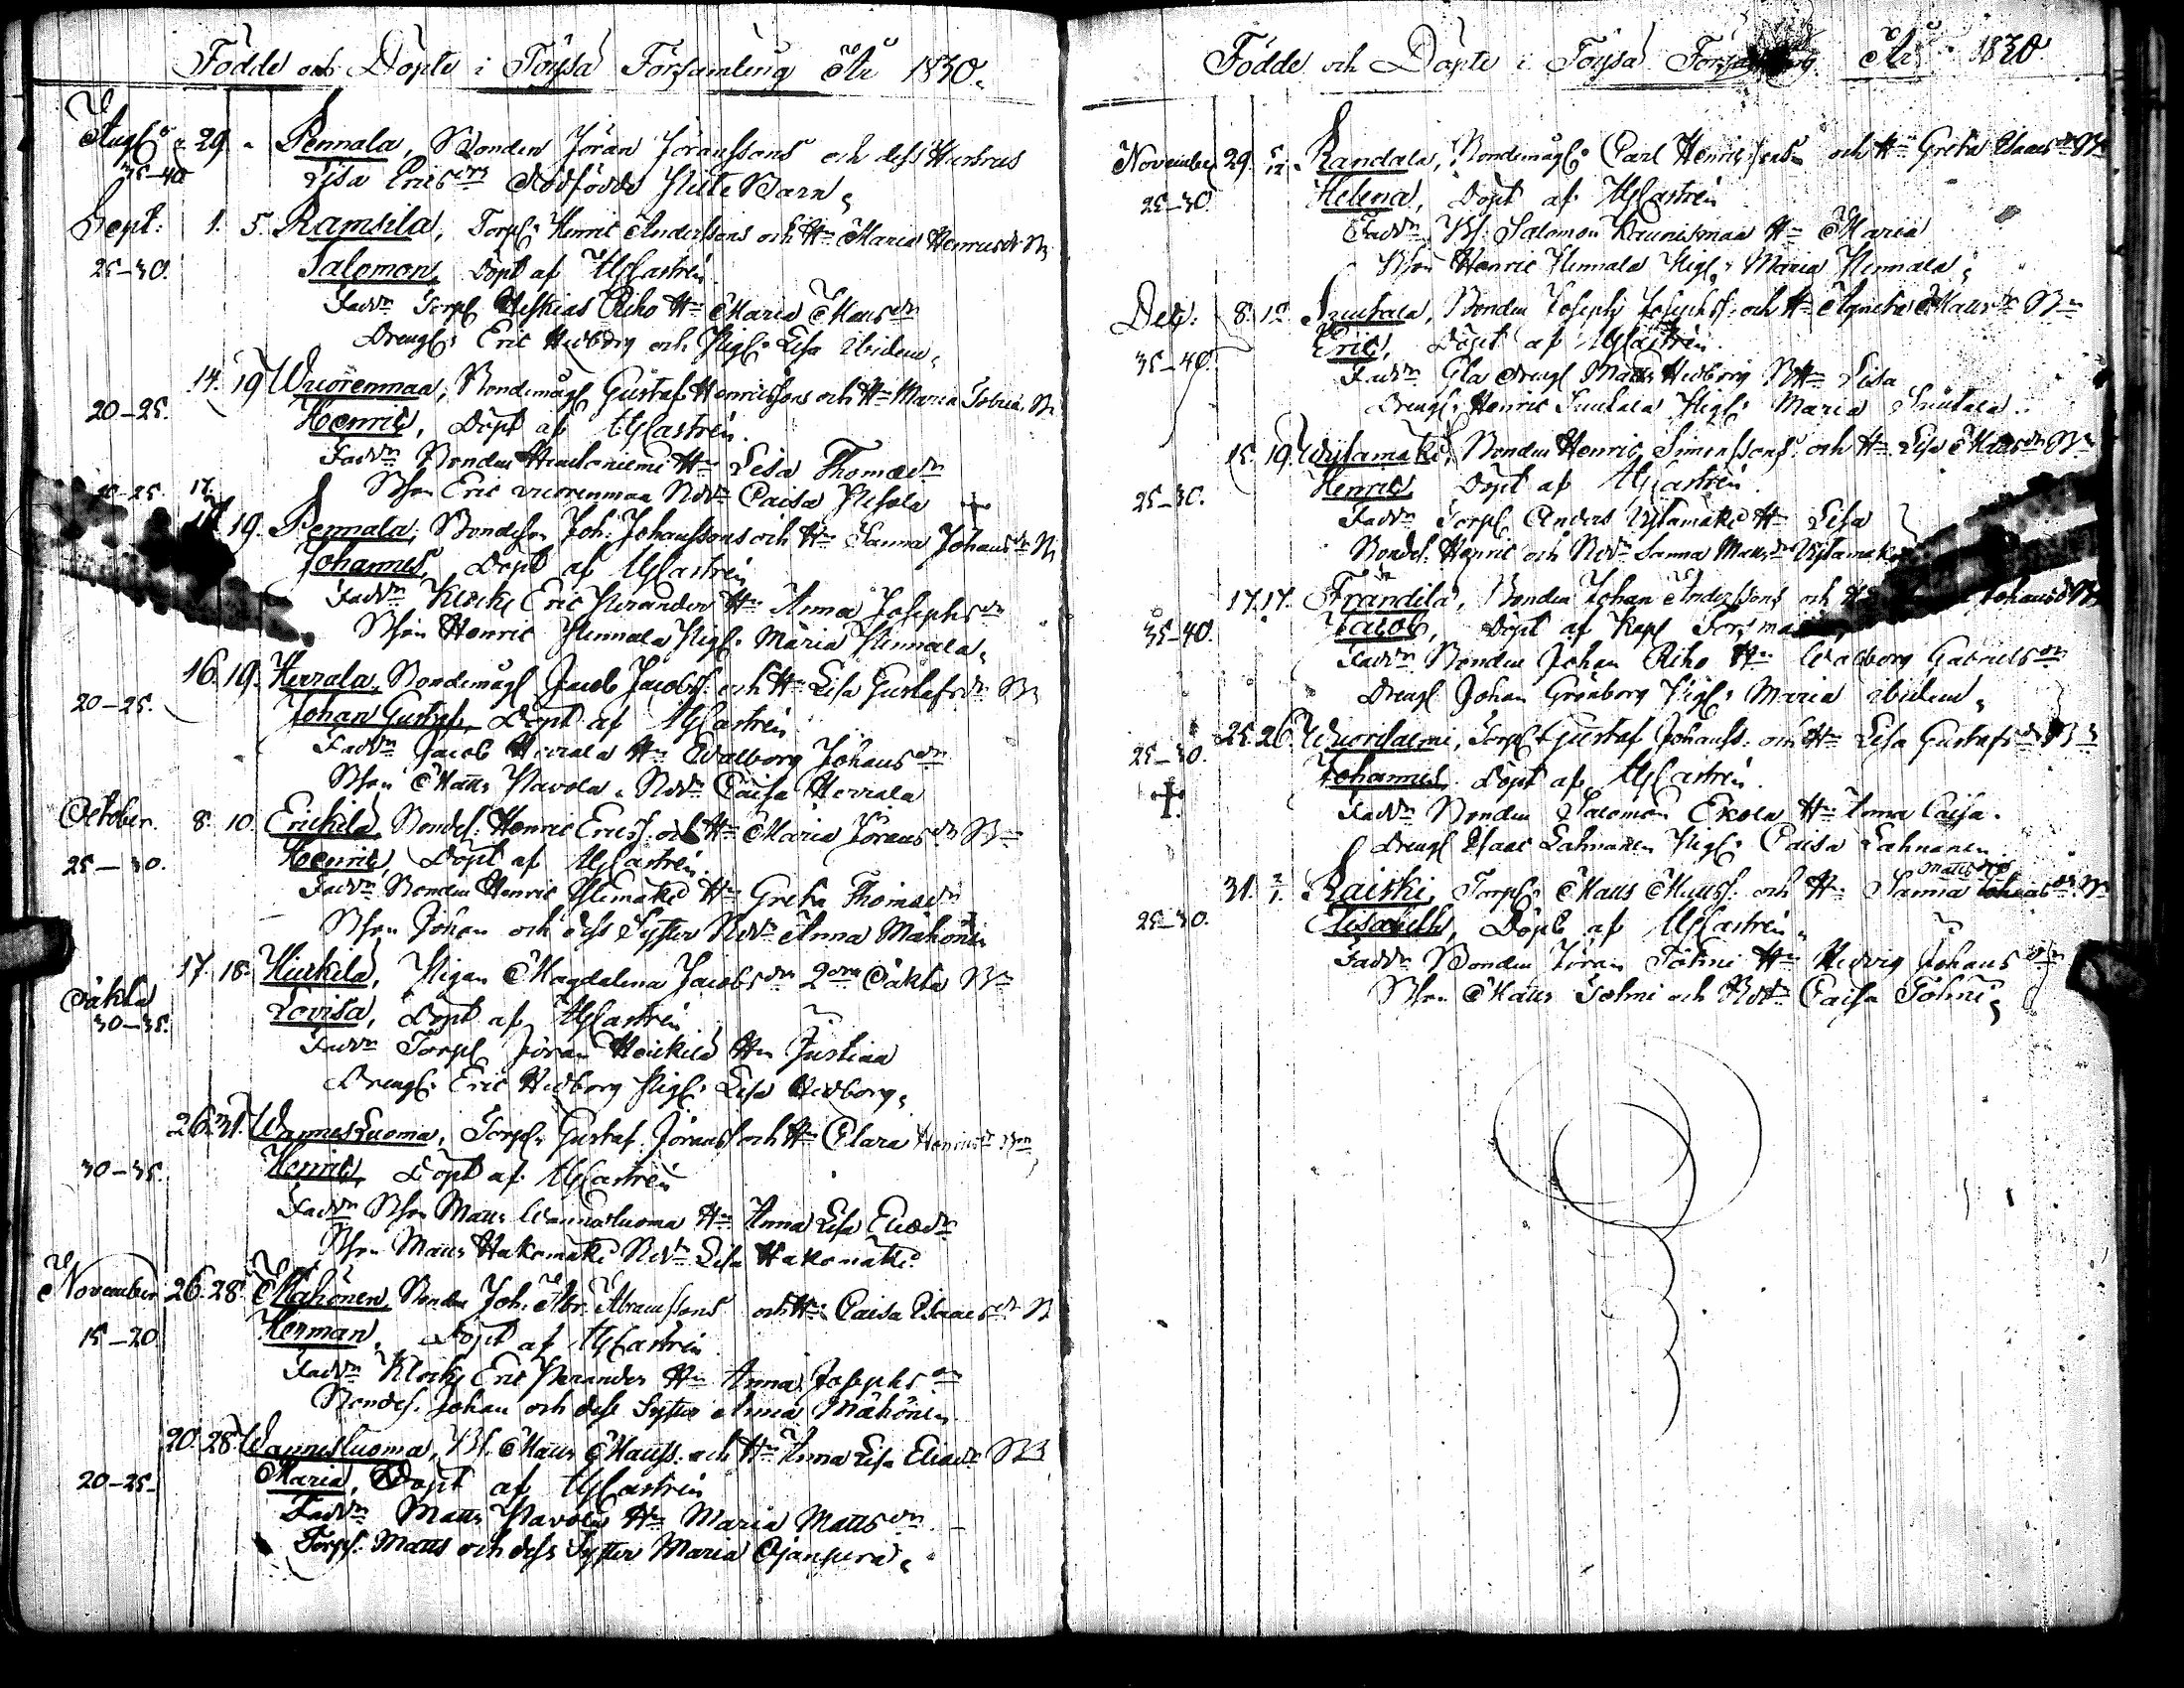 Födde och Döpte i Töysä Församling År 1830.
Aug. 29. Pennala, Bonden Jöran Jöranssons och dess Hustrus
35-40 Lisa Ericsdrs Dödfödde Barn
Sept: 1. 5. Ramsila, Torp. Henric Anderssons och H. Maria Henricsdr Bn
25-30. Salomon, Döpt af Castrén
Faddr Torp. Heskias Riho H. Maria Mattsdr
Drengs Eric Hedborg och Pig. Lisa ibidem
14. 19 Wuorenmaa, Bondemåg Gustaf Henricssons och H. Maria Bn
20-25. Henric, Döpt af Castrén
Faddr Bonden H. Lisa Thomædr
Bson Eric Wuorenmaa Bdr Caisa
20-25. 17. 19. Pennala, Bondeson Joh: Johanssons och H. Sanna Johansdr Bn
Johannes, Döpt af Castrén
Faddr Klock. Eric Perander H. Anna Josephsdr
Bson Henric Pennala Pig. Maria Pennala
16. 19. Herrala, Bondemåg Jacob Jacobss. och H. Lisa Gustafsdr Bn
20-25. Johan Gustaf, Döpt af Castrén
Faddr Jacob Herrala H. Walborg Johansdr
Bson Matts Pavola, Bdr Caisa Herrala
October. 8. 10. Erickilä, Bondes. Henric Ericss. och H. Maria Jöransdr Bn
25-30. Henric, Döpt af Castrén
Faddr Bonden Henric H. Greta Thomædr
Bson Johan och dess Syster Bdr Anna Mähönen
17. 18. Heikilä, Pigan Magdalena Jacobsdr 2dra oäkta Bn
oäkta 30-35. Lovisa, Döpt af Castrén
Faddr Torp. Jöran Heikilä H. Justina
Drengs Eric Hedborg Pig. Lisa Hedborg
26. 31. Wannesluoma, Torp. Gustaf Jöranss. och H. Clara Henricsdr Bn
30-35. Henric, Döpt af Castrén
Faddr Bson Matts Wannesluoma H. Anna Lisa Eliædr
Bson Matts Hakomäki Bdr Lisa Hakomäki
November 26. 28. Mähönen, Bonden Joh. Abr. Abramssons och H. Caisa Isaacsdr B
15-20. Herman, Döpt af Castrén
Faddr Klock. Eric Perander H. Anna Josephsdr
Bondes. Johan och dess Syster Anna Mähönen
20. 28. Wannesluoma, Bs. Matts Mattss. och H. Anna Lisa Eliædr Bn
20-25. Maria, Döpt af Castrén
Faddr Matts Pavola H. Maria Mattsdr
Torps. Matts och dess Syster Maria Ojanperä
Födde och Döpte i Töysä Församling År 1830
November 29. 5/12. Randala, Bondemåg. Carl Henricss. och H. Greta Isaacsdr Bn
25-30. Helena, Döpt af Castrén
Faddr Bs. Salomon Kaunismaa H. Maria
Bson Henric Pennala Pig. Maria Pennala
Dec. 8. 10. Inutala, Bonden Joseph Josephss. och H. Agneta Mattsdr Bn
35-40. Eric, Döpt af Castrén
Faddr Gla dreng Matts Hedborg H. Lisa
Drengs. Henric Pig. Maria
15. 19. Wylamäki, Bonden Henric Simonssons och H. Lisa Mattsdr Bn
25-30. Henric, Döpt af Castrén
Faddr Torp. Anders Wylamäki H. Lisa
Bondes. Henric och Bdr Sanna Mattsdr
17. 17. Frändilä, Bonden Johan Anderssons och Johansdr Bn
35-40. Jacob, Döpt af Kapl. Forsman
Faddr Bonden Johan Riho H. Walborg Gabrielsdr
Dreng Johan Grönborg Pig. Maria ibidem
25. 26. Wuorisalmi, Torp. Gustaf Johanss. och H. Lisa Gustafsdr Bn
25-30. Johannes, Döpt af Castrén
Faddr Bonden Salomon Ekola H. Anna Caisa
Dreng Isaac Lahnanen Pig. Caisa Lahnanen
31. 2/1. Raiski, Torp. Matts Mattss. och H. Sanna Mattsdr Bn
25-30. Elisabeth, Döpt af Castrén
Faddr Bonden Jöran Tohni H. Hedvig Johansdr
Bson Matts Tohni och Bdr Caisa Tohni